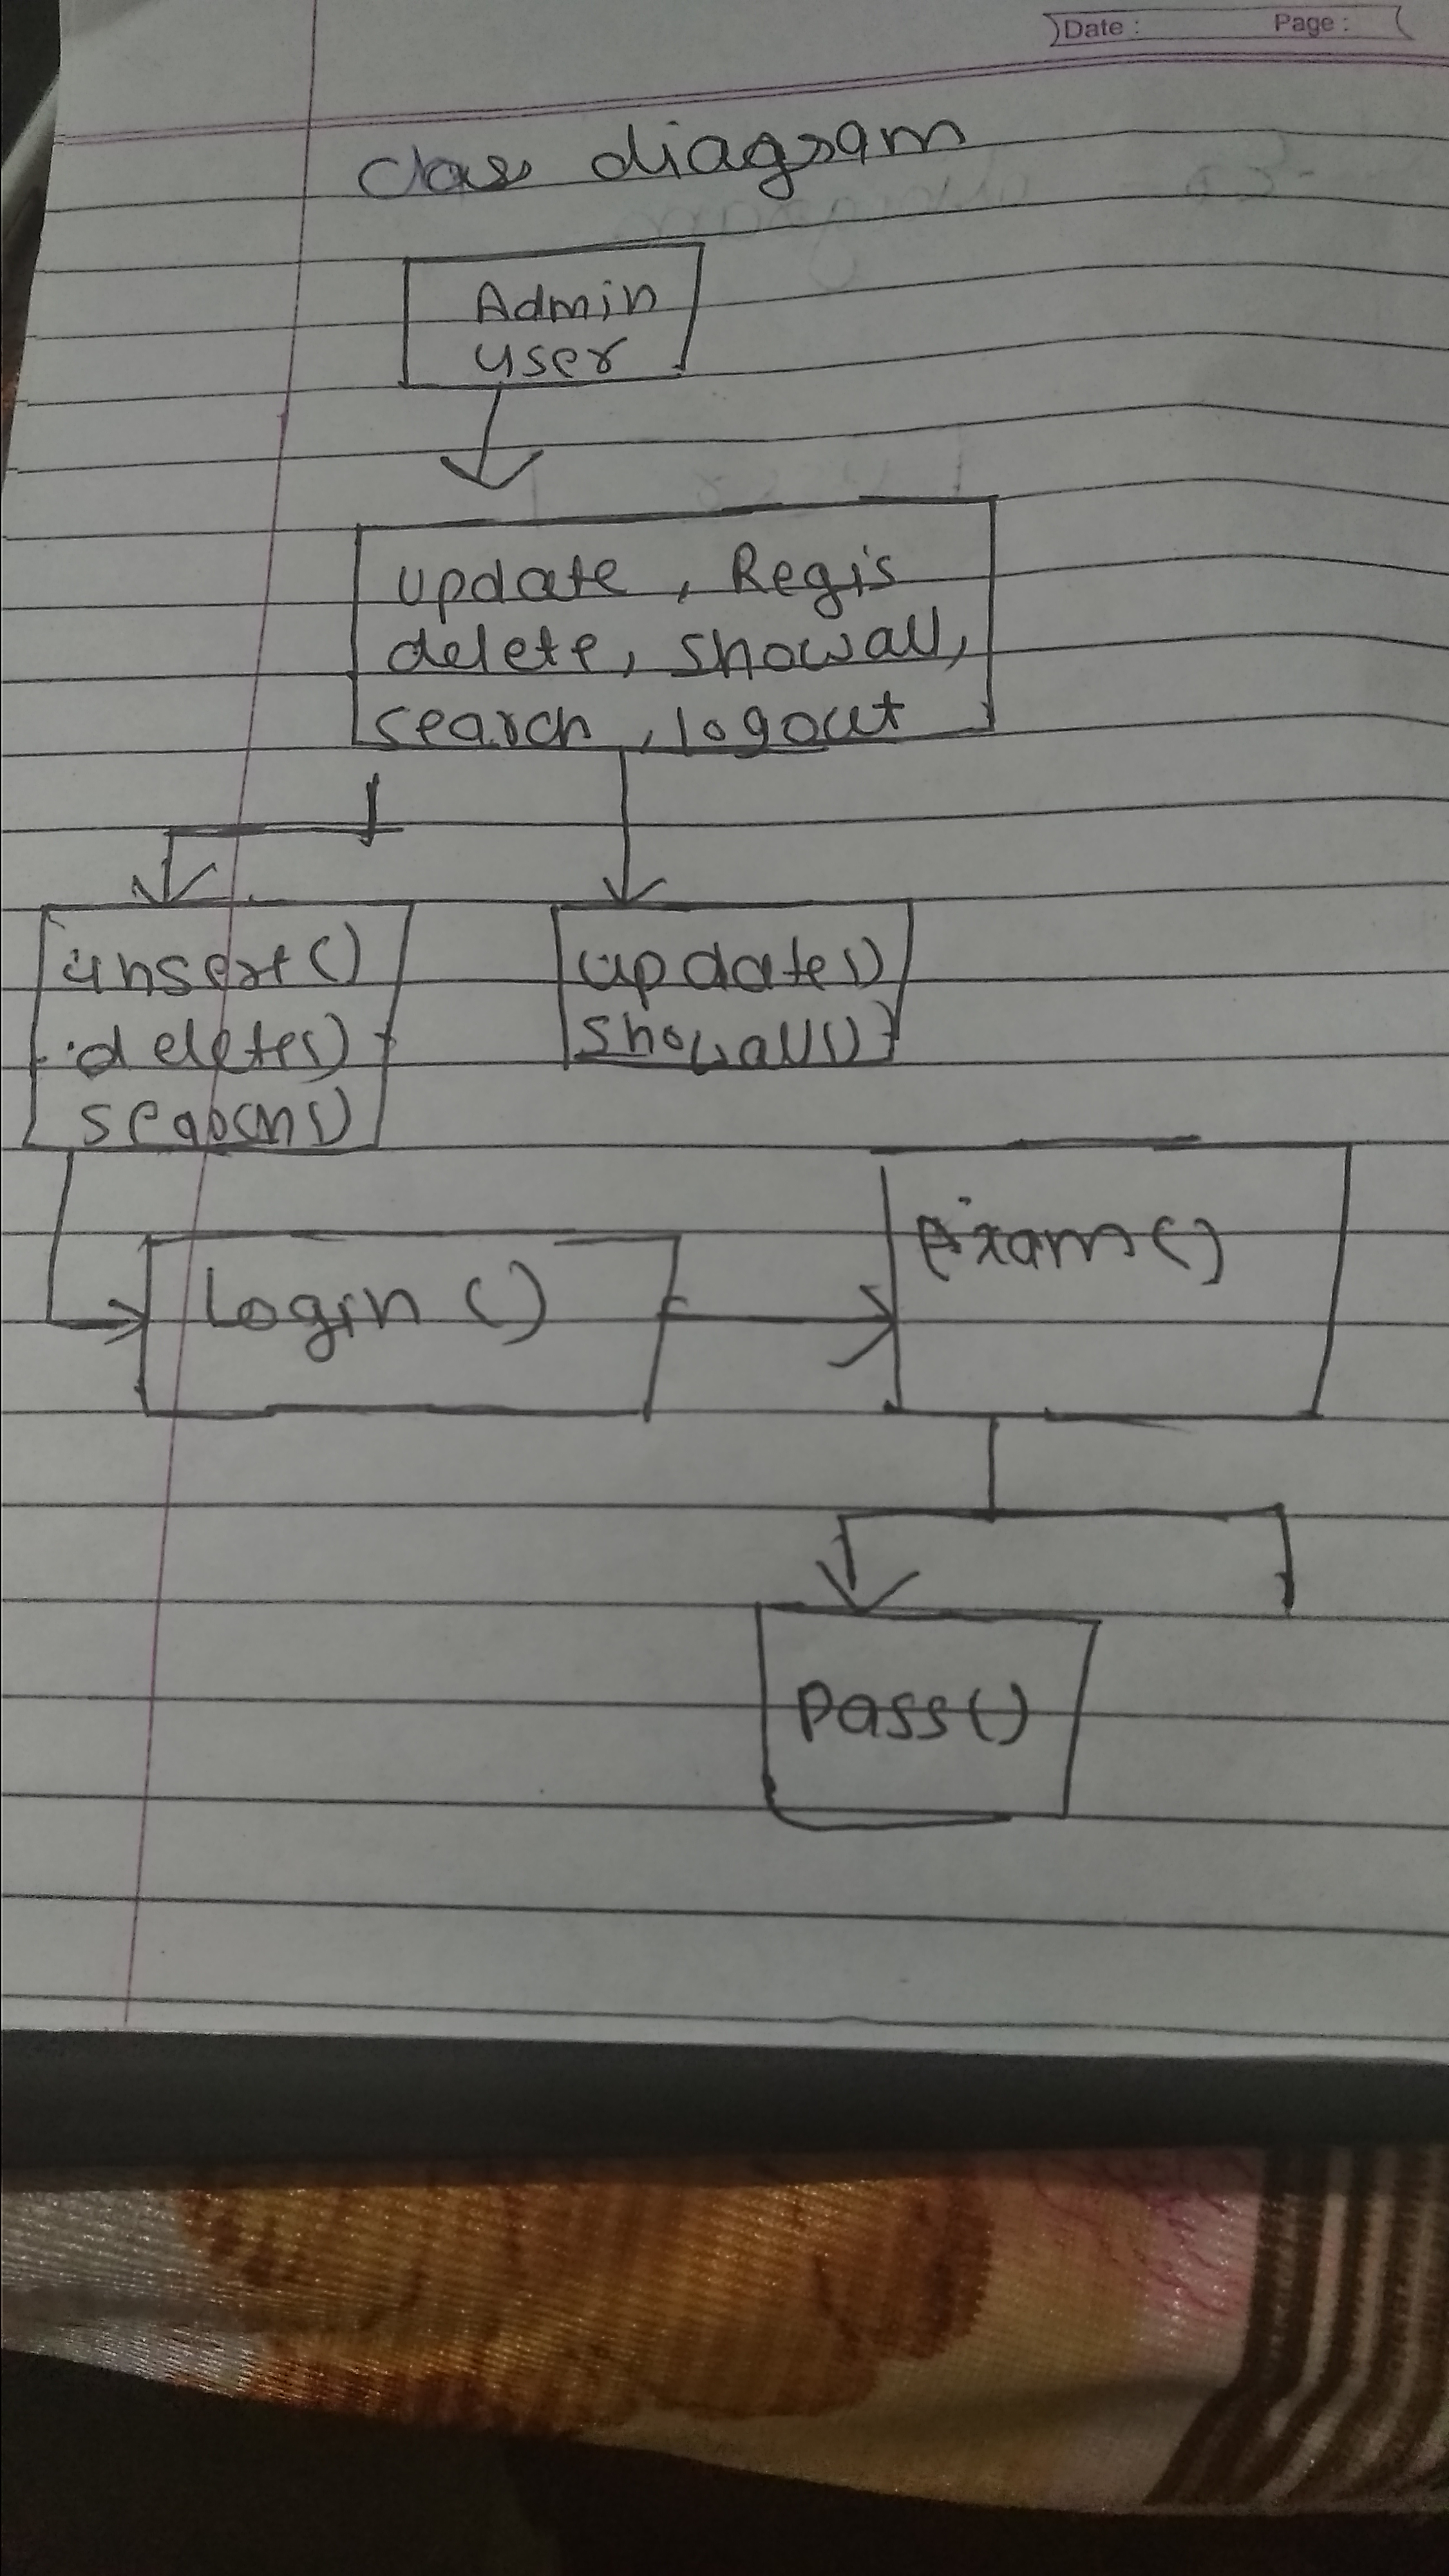 Date : Page :
class diagram
Admin
user
update , Regis
delete, showall,
search , logout
insert()
delete()
search()
update()
showall()
Login ()
exam()
pass()